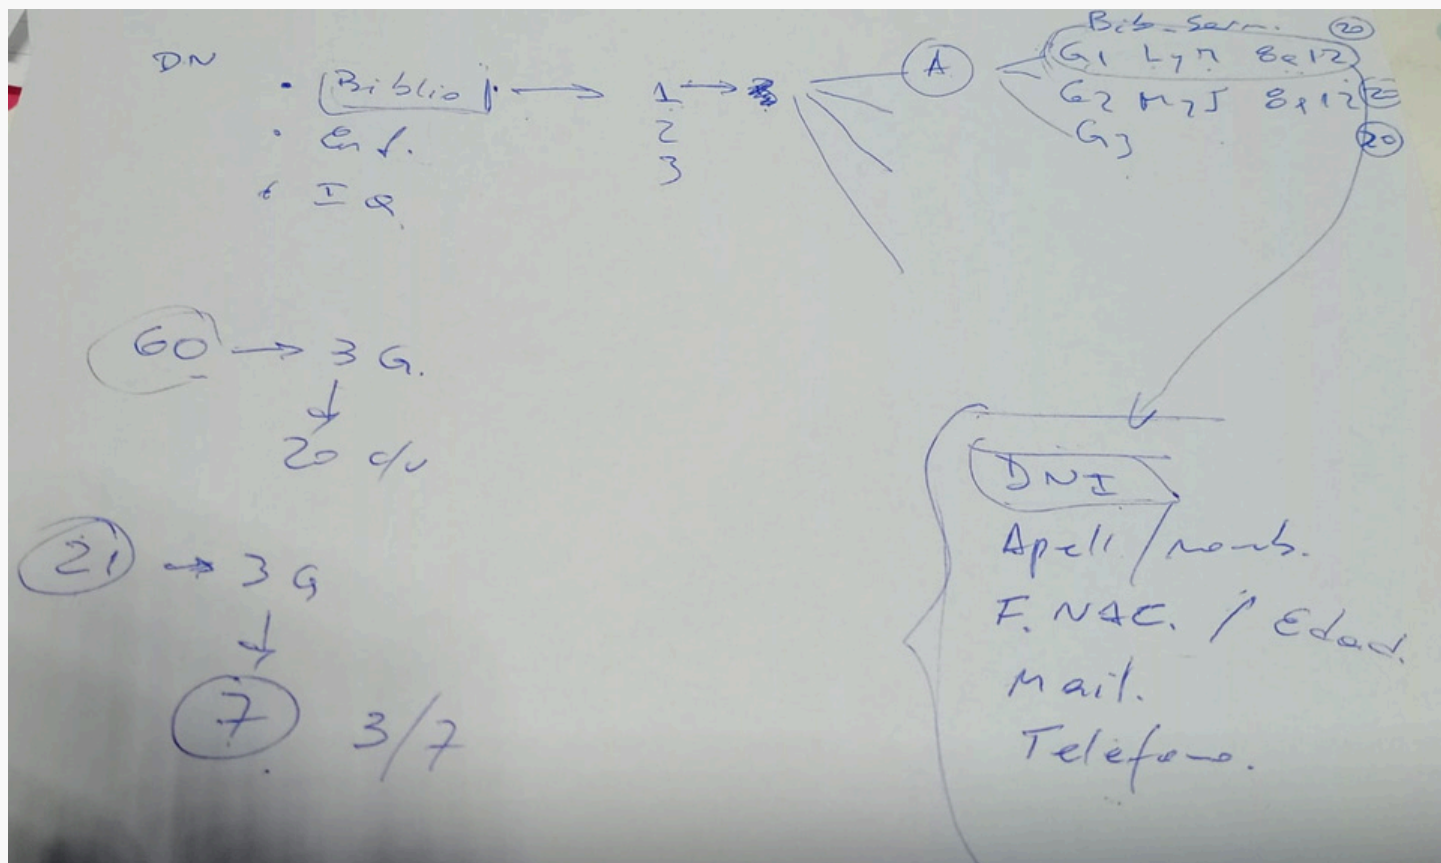 DN
• Biblio → 1 →
• Enf.
2
3
• IQ
A
Bib. 20
G1 LyM 8a12
G2 MyJ 8a12
G3 20
60 → 3 G.
20 c/u
21 → 3 G
7 3/7
DNI
Apell/nomb.
F. NAC. / Edad.
Mail.
Teléfono.